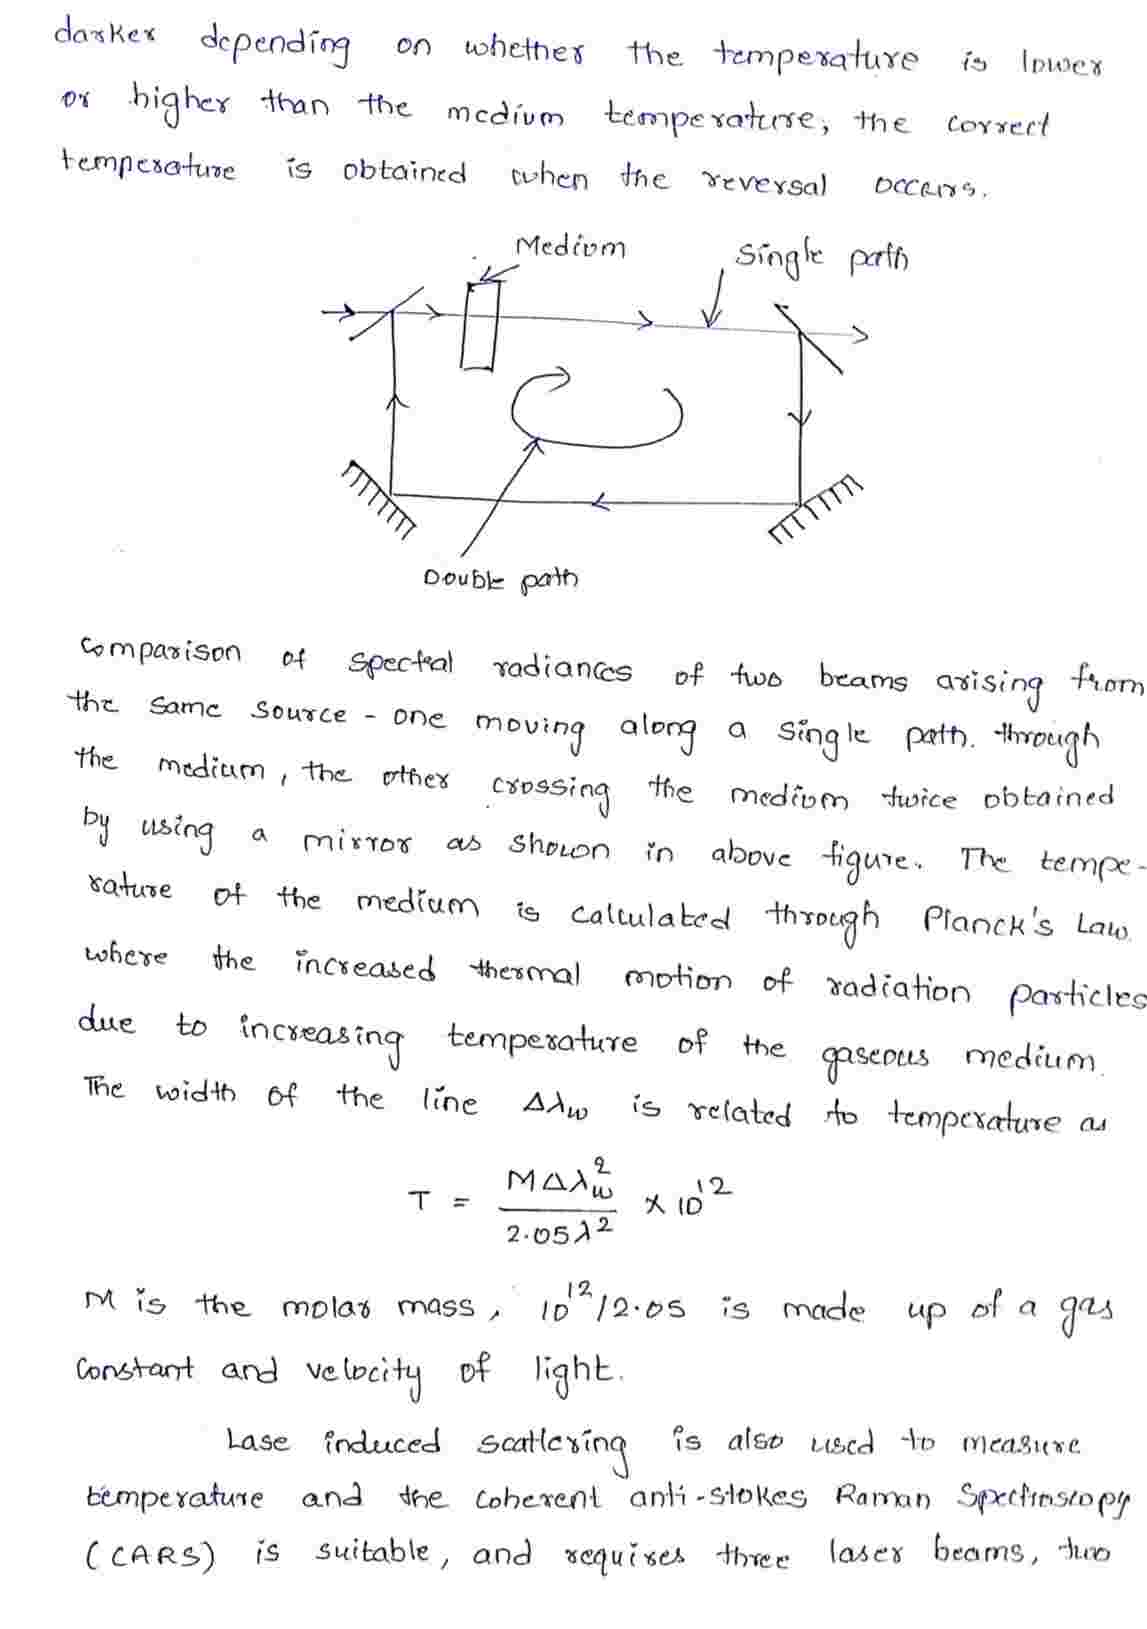 darker depending on whether the temperature is lower
or higher than the medium temperature, the correct
temperature is obtained when the reversal occurs.
Medium
Single path
Double path
Comparison of spectral radiances of two beams arising from
the same source - one moving along a single path. through
the medium, the other crossing the medium twice obtained
by using a mirror as shown in above figure. The tempe-
rature of the medium is calculated through Planck's Law.
where the increased thermal motion of radiation particles
due to increasing temperature of the gaseous medium.
The width of the line Δλw is related to temperature as
T = MΔλw² / 2.05λ² × 10¹²
M is the molar mass, 10¹²/2.05 is made up of a gas
constant and velocity of light.
Lase induced scattering is also used to measure
temperature and the coherent anti-stokes Raman Spectroscopy
(CARS) is suitable, and requires three laser beams, two